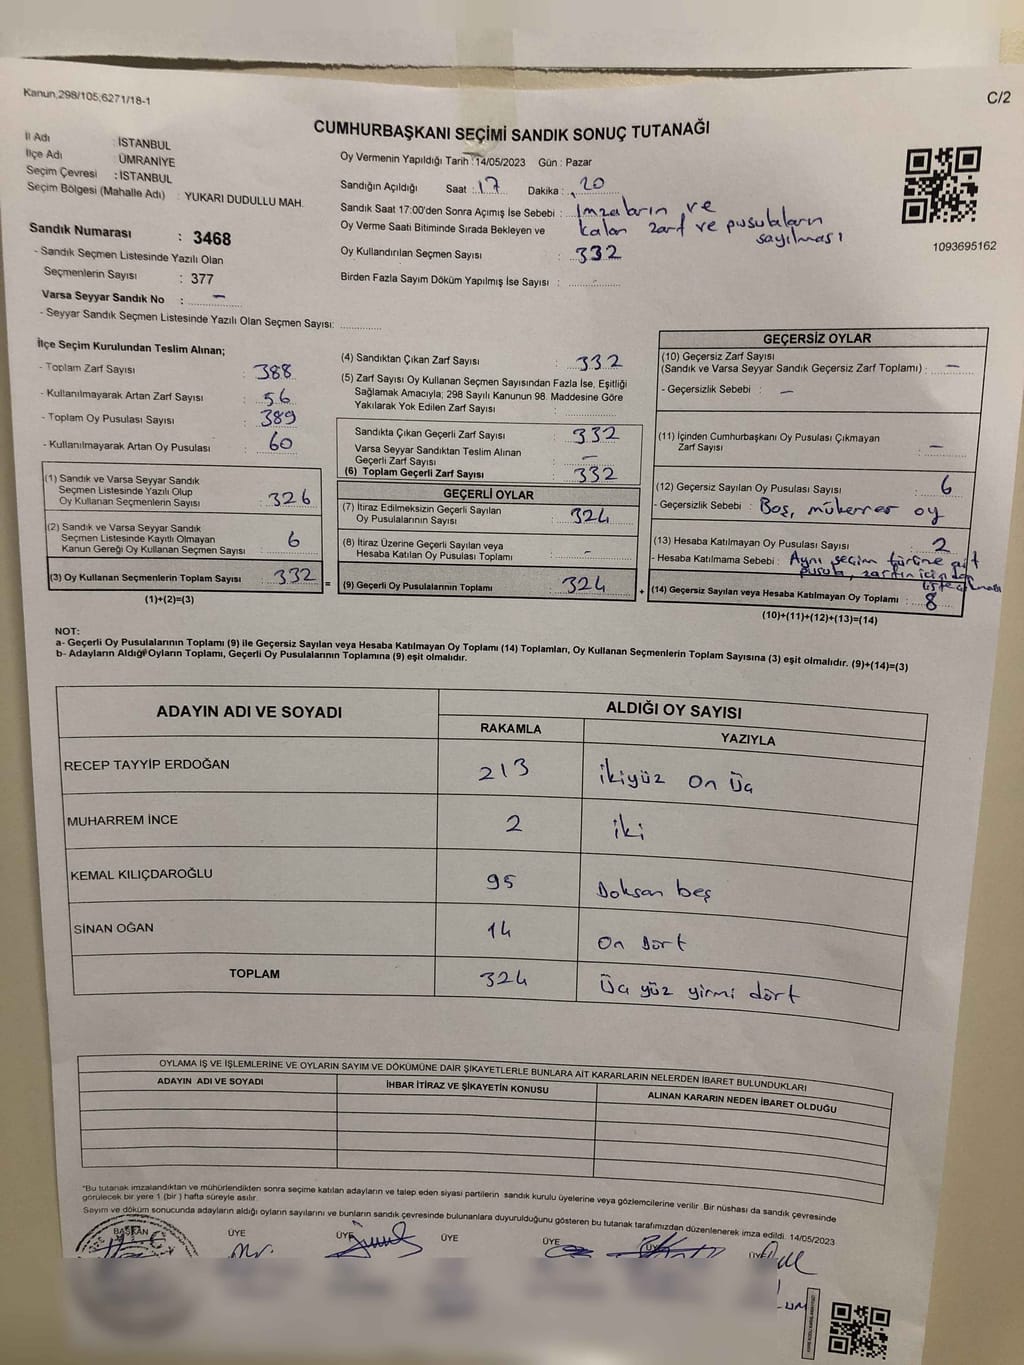 Kanun,298/105,6271/18-1
C/2
CUMHURBAŞKANI SEÇİMİ SANDIK SONUÇ TUTANAĞI
İl Adı : İSTANBUL
İlçe Adı : ÜMRANİYE
Seçim Çevresi : İSTANBUL
Seçim Bölgesi (Mahalle Adı) : YUKARI DUDULLU MAH.
Sandık Numarası : 3468
- Sandık Seçmen Listesinde Yazılı Olan
Seçmenlerin Sayısı : 377
Varsa Seyyar Sandık No : -
- Seyyar Sandık Seçmen Listesinde Yazılı Olan Seçmen Sayısı:
Oy Vermenin Yapıldığı Tarih : 14/05/2023 Gün : Pazar
Sandığın Açıldığı Saat : 17 Dakika : 20
Sandık Saat 17:00'den Sonra Açımış İse Sebebi : İmzaların ve
Oy Verme Saati Bitiminde Sırada Bekleyen ve kalan zarf ve pusulaların
sayılması
Oy Kullandırılan Seçmen Sayısı : 332
Birden Fazla Sayım Döküm Yapılmış İse Sayısı : -
1093695162
İlçe Seçim Kurulundan Teslim Alınan;
- Toplam Zarf Sayısı : 388
- Kullanılmayarak Artan Zarf Sayısı : 56
- Toplam Oy Pusulası Sayısı : 389
- Kullanılmayarak Artan Oy Pusulası : 60
(1) Sandık ve Varsa Seyyar Sandık
Seçmen Listesinde Yazılı Olup
Oy Kullanan Seçmenlerin Sayısı : 326
(2) Sandık ve Varsa Seyyar Sandık
Seçmen Listesinde Kayıtlı Olmayan
Kanun Gereği Oy Kullanan Seçmen Sayısı : 6
(3) Oy Kullanan Seçmenlerin Toplam Sayısı : 332
(1)+(2)=(3)
=
(4) Sandıktan Çıkan Zarf Sayısı : 332
(5) Zarf Sayısı Oy Kullanan Seçmen Sayısından Fazla İse, Eşitliği
Sağlamak Amacıyla; 298 Sayılı Kanunun 98. Maddesine Göre
Yakılarak Yok Edilen Zarf Sayısı :
Sandıkta Çıkan Geçerli Zarf Sayısı : 332
Varsa Seyyar Sandıktan Teslim Alınan
Geçerli Zarf Sayısı : -
(6) Toplam Geçerli Zarf Sayısı : 332
GEÇERLİ OYLAR
(7) İtiraz Edilmeksizin Geçerli Sayılan
Oy Pusulalarının Sayısı : 324
(8) İtiraz Üzerine Geçerli Sayılan veya
Hesaba Katılan Oy Pusulası Toplamı : -
(9) Geçerli Oy Pusulalarının Toplamı : 324
+
GEÇERSİZ OYLAR
(10) Geçersiz Zarf Sayısı
(Sandık ve Varsa Seyyar Sandık Geçersiz Zarf Toplamı) : -
- Geçersizlik Sebebi : -
(11) İçinden Cumhurbaşkanı Oy Pusulası Çıkmayan
Zarf Sayısı : -
(12) Geçersiz Sayılan Oy Pusulası Sayısı : 6
- Geçersizlik Sebebi : Boş, mükerrer oy
(13) Hesaba Katılmayan Oy Pusulası Sayısı : 2
- Hesaba Katılmama Sebebi : Aynı seçim türüne ait
pusula, zarfın içinden
(14) Geçersiz Sayılan veya Hesaba Katılmayan Oy Toplamı : 8
(10)+(11)+(12)+(13)=(14)
NOT:
a- Geçerli Oy Pusulalarının Toplamı (9) ile Geçersiz Sayılan veya Hesaba Katılmayan Oy Toplamı (14) Toplamları, Oy Kullanan Seçmenlerin Toplam Sayısına (3) eşit olmalıdır. (9)+(14)=(3)
b- Adayların Aldığı Oyların Toplamı, Geçerli Oy Pusulalarının Toplamına (9) eşit olmalıdır.
ADAYIN ADI VE SOYADI
ALDIĞI OY SAYISI
RAKAMLA YAZIYLA
RECEP TAYYİP ERDOĞAN 213 ikiyüz On Üç
MUHARREM İNCE 2 iki
KEMAL KILIÇDAROĞLU 95 Doksan beş
SİNAN OĞAN 14 On Dört
TOPLAM 324 Üç yüz yirmi dört
OYLAMA İŞ VE İŞLEMLERİNE VE OYLARIN SAYIM VE DÖKÜMÜNE DAİR ŞİKAYETLERLE BUNLARA AİT KARARLARIN NELERDEN İBARET BULUNDUKLARI
ADAYIN ADI VE SOYADI İHBAR İTİRAZ VE ŞİKAYETİN KONUSU ALINAN KARARIN NEDEN İBARET OLDUĞU
*Bu tutanak imzalandıktan ve mühürlendikten sonra seçime katılan adayların ve talep eden siyasi partilerin sandık kurulu üyelerine veya gözlemcilerine verilir. Bir nüshası da sandık çevresinde
görülecek bir yere 1 (bir) hafta süreyle asılır.
Sayım ve döküm sonucunda adayların aldığı oyların sayılarını ve bunların sandık çevresinde bulunanlara duyurulduğunu gösteren bu tutanak tarafımızdan düzenlenerek imza edildi. 14/05/2023
BAŞKAN ÜYE ÜYE ÜYE ÜYE ÜYE ÜYE